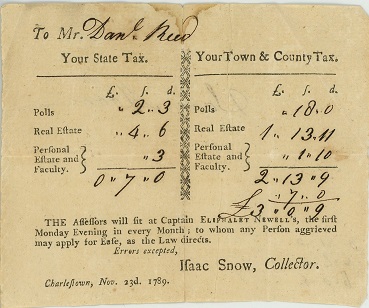 To Mr. Danl. Reed
Your State Tax.
£. s. d.
Polls " 2 " 3
Real Estate " 4 " 6
Personal Estate and Faculty. } " 3
0 " 7 " 0
Your Town & County Tax.
£. s. d.
Polls " 18 " 0
Real Estate 1 " 13 " 11
Personal Estate and Faculty. } " 1 " 10
2 " 13 " 9
" 7 " 0
£3 " 0 " 9
THE Assessors will sit at Captain ELIPHALET NEWELL's, the first
Monday Evening in every Month; to whom any Person aggrieved
may apply for Ease, as the Law directs.
Errors excepted,
Isaac Snow, Collector.
Charlestown, Nov. 23d. 1789.